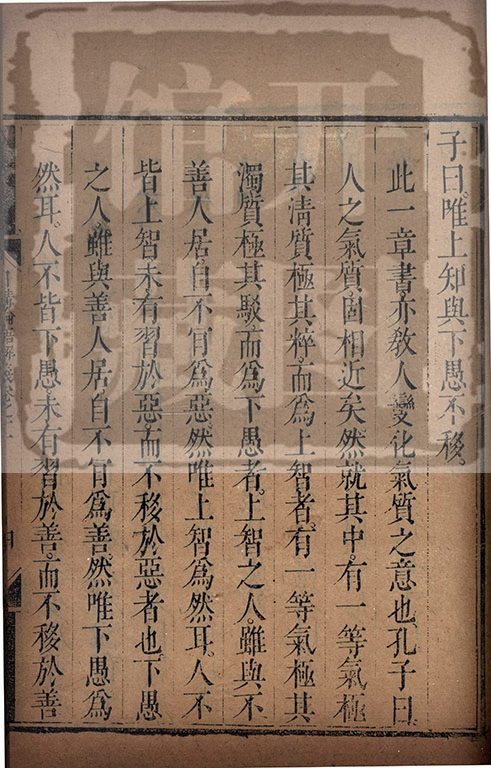 子曰。唯上知與下愚不移。
此一章書亦敎人變化氣質之意也。孔子曰。
人之氣質。固相近矣。然就其中。有一等氣極
其淸質極其粹。而爲上智者。有一等氣極其
濁質極其駁。而爲下愚者。上智之人。雖與不
善人居。自不肎爲惡。然唯上智爲然耳。人不
皆上智。未有習於惡。而不移於惡者也。下愚
之人。雖與善人居。自不肎爲善。然唯下愚爲
然耳。人不皆下愚。未有習於善。而不移於善